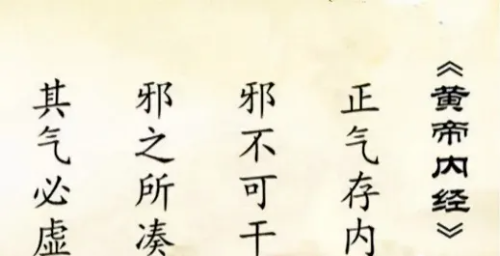 《黄帝内经》
正气存内
邪不可干
邪之所凑
其气必虚